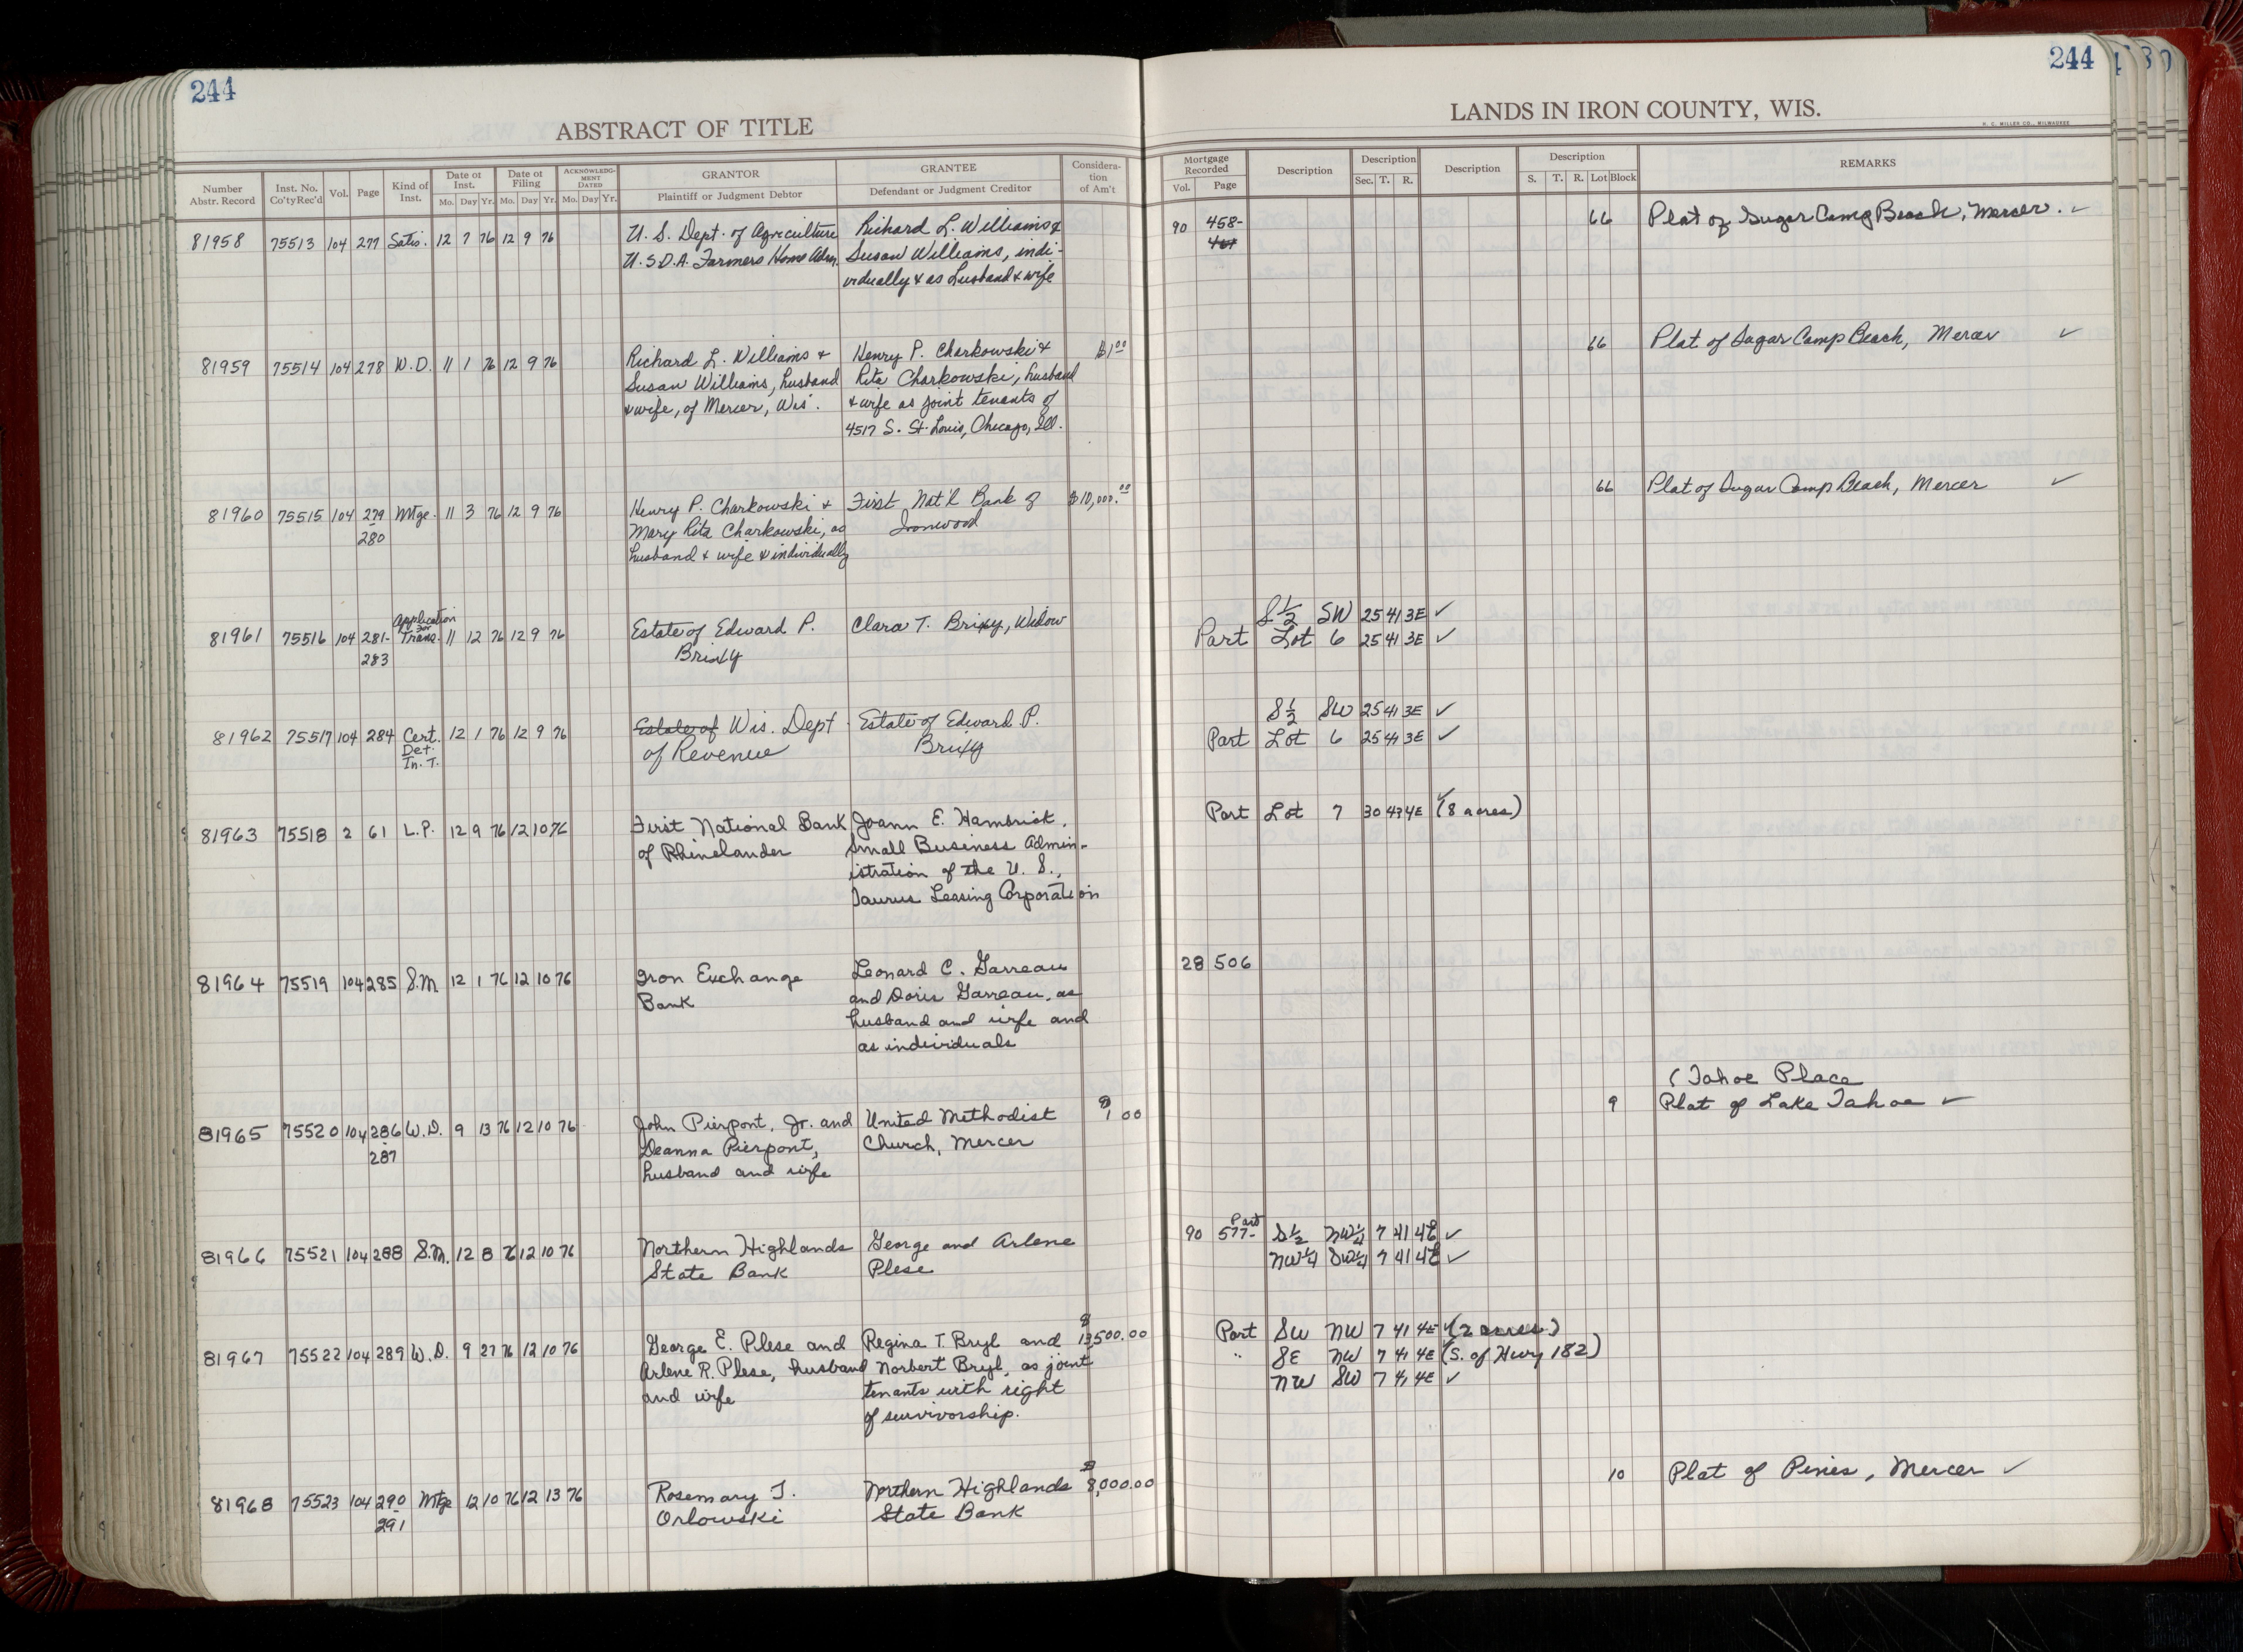 244
ABSTRACT OF TITLE
Number Abstr. Record | Inst. No. Co'ty Rec'd | Vol. | Page | Kind of Inst. | Date of Inst. Mo. Day Yr. | Date of Filing Mo. Day Yr. | ACKNOWLEDGMENT DATED Mo. Day Yr. | GRANTOR Plaintiff or Judgment Debtor | GRANTEE Defendant or Judgment Creditor | Consideration of Am't
81958 75513 104 277 Satis. 12 7 76 12 9 76 U. S. Dept. of Agriculture Richard L. Williams &
U.S.D.A. Farmers Home Adm. Susan Williams, indi-
vidually & as husband & wife
81959 75514 104 278 W.D. 11 1 76 12 9 76 Richard L. Williams & Henry P. Charkowski & $1.00
Susan Williams, husband Rita Charkowski, husband
& wife, of Mercer, Wis. & wife as joint tenants of
4517 S. St. Louis, Chicago, Ill.
81960 75515 104 279 Mtge. 11 3 76 12 9 76 Henry P. Charkowski & First Nat'l Bank of $10,000.00
-280 Mary Rita Charkowski, as Ironwood
husband & wife & individually
Application for
81961 75516 104 281- Trans. 11 12 76 12 9 76 Estate of Edward P. Clara T. Brixy, Widow
283 Brixly
81962 75517 104 284 Cert. 12 1 76 12 9 76 Estate of Wis. Dept. Estate of Edward P.
Det. of Revenue Brixy
In. T.
81963 75518 2 61 L.P. 12 9 76 12 10 76 First National Bank Joann E. Hambrick,
of Rhinelander Small Business Admin-
istration of the U. S.,
Taurus Leasing Corporation
81964 75519 104 285 S.M 12 1 76 12 10 76 Iron Exchange Leonard C. Garreau
Bank and Doris Garreau, as
husband and wife and
as individuals
81965 75520 104 286 W.D. 9 13 76 12 10 76 John Pierpont, Jr. and United Methodist $1 00
-287 Deanna Pierpont, Church, Mercer
husband and wife
81966 75521 104 288 S.M. 12 8 76 12 10 76 Northern Highlands George and Arlene
State Bank Plese
81967 75522 104 289 W.D. 9 27 76 12 10 76 George E. Plese and Regina T. Bryl and $13,500.00
Arlene R. Plese, husband Norbert Bryl, as joint
and wife tenants with right
of survivorship.
81968 75523 104 290 Mtge 12 10 76 12 13 76 Rosemary T. Northern Highlands $8,000.00
-291 Orlowski State Bank
244
LANDS IN IRON COUNTY, WIS.
H. C. MILLER CO., MILWAUKEE
Mortgage Recorded Vol. Page | Description | Description Sec. T. R. | Description | Description S. T. R. Lot Block | REMARKS
90 458- 66 Plat of Sugar Camp Beach, Mercer. ✓
461
66 Plat of Sugar Camp Beach, Mercer ✓
66 Plat of Sugar Camp Beach, Mercer ✓
S½ SW 25 41 3E ✓
Part Lot 6 25 41 3E ✓
S½ SW 25 41 3E ✓
Part Lot 6 25 41 3E ✓
Part Lot 7 30 43 4E ✓ (8 acres)
28 506
(Tahoe Place
9 Plat of Lake Tahoe ✓
Part
90 577- S½ NW¼ 7 41 4E ✓
NW¼ SW¼ 7 41 4E ✓
Part SW NW 7 41 4E ✓ (2 acres)
" SE NW 7 41 4E (S. of Hwy 182)
NW SW 7 41 4E ✓
10 Plat of Pines, Mercer ✓